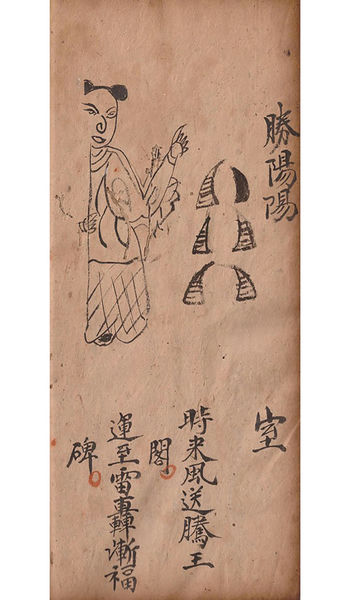 勝陽陽
室
時来風送騰王
閣
運至雷轟漸福
碑